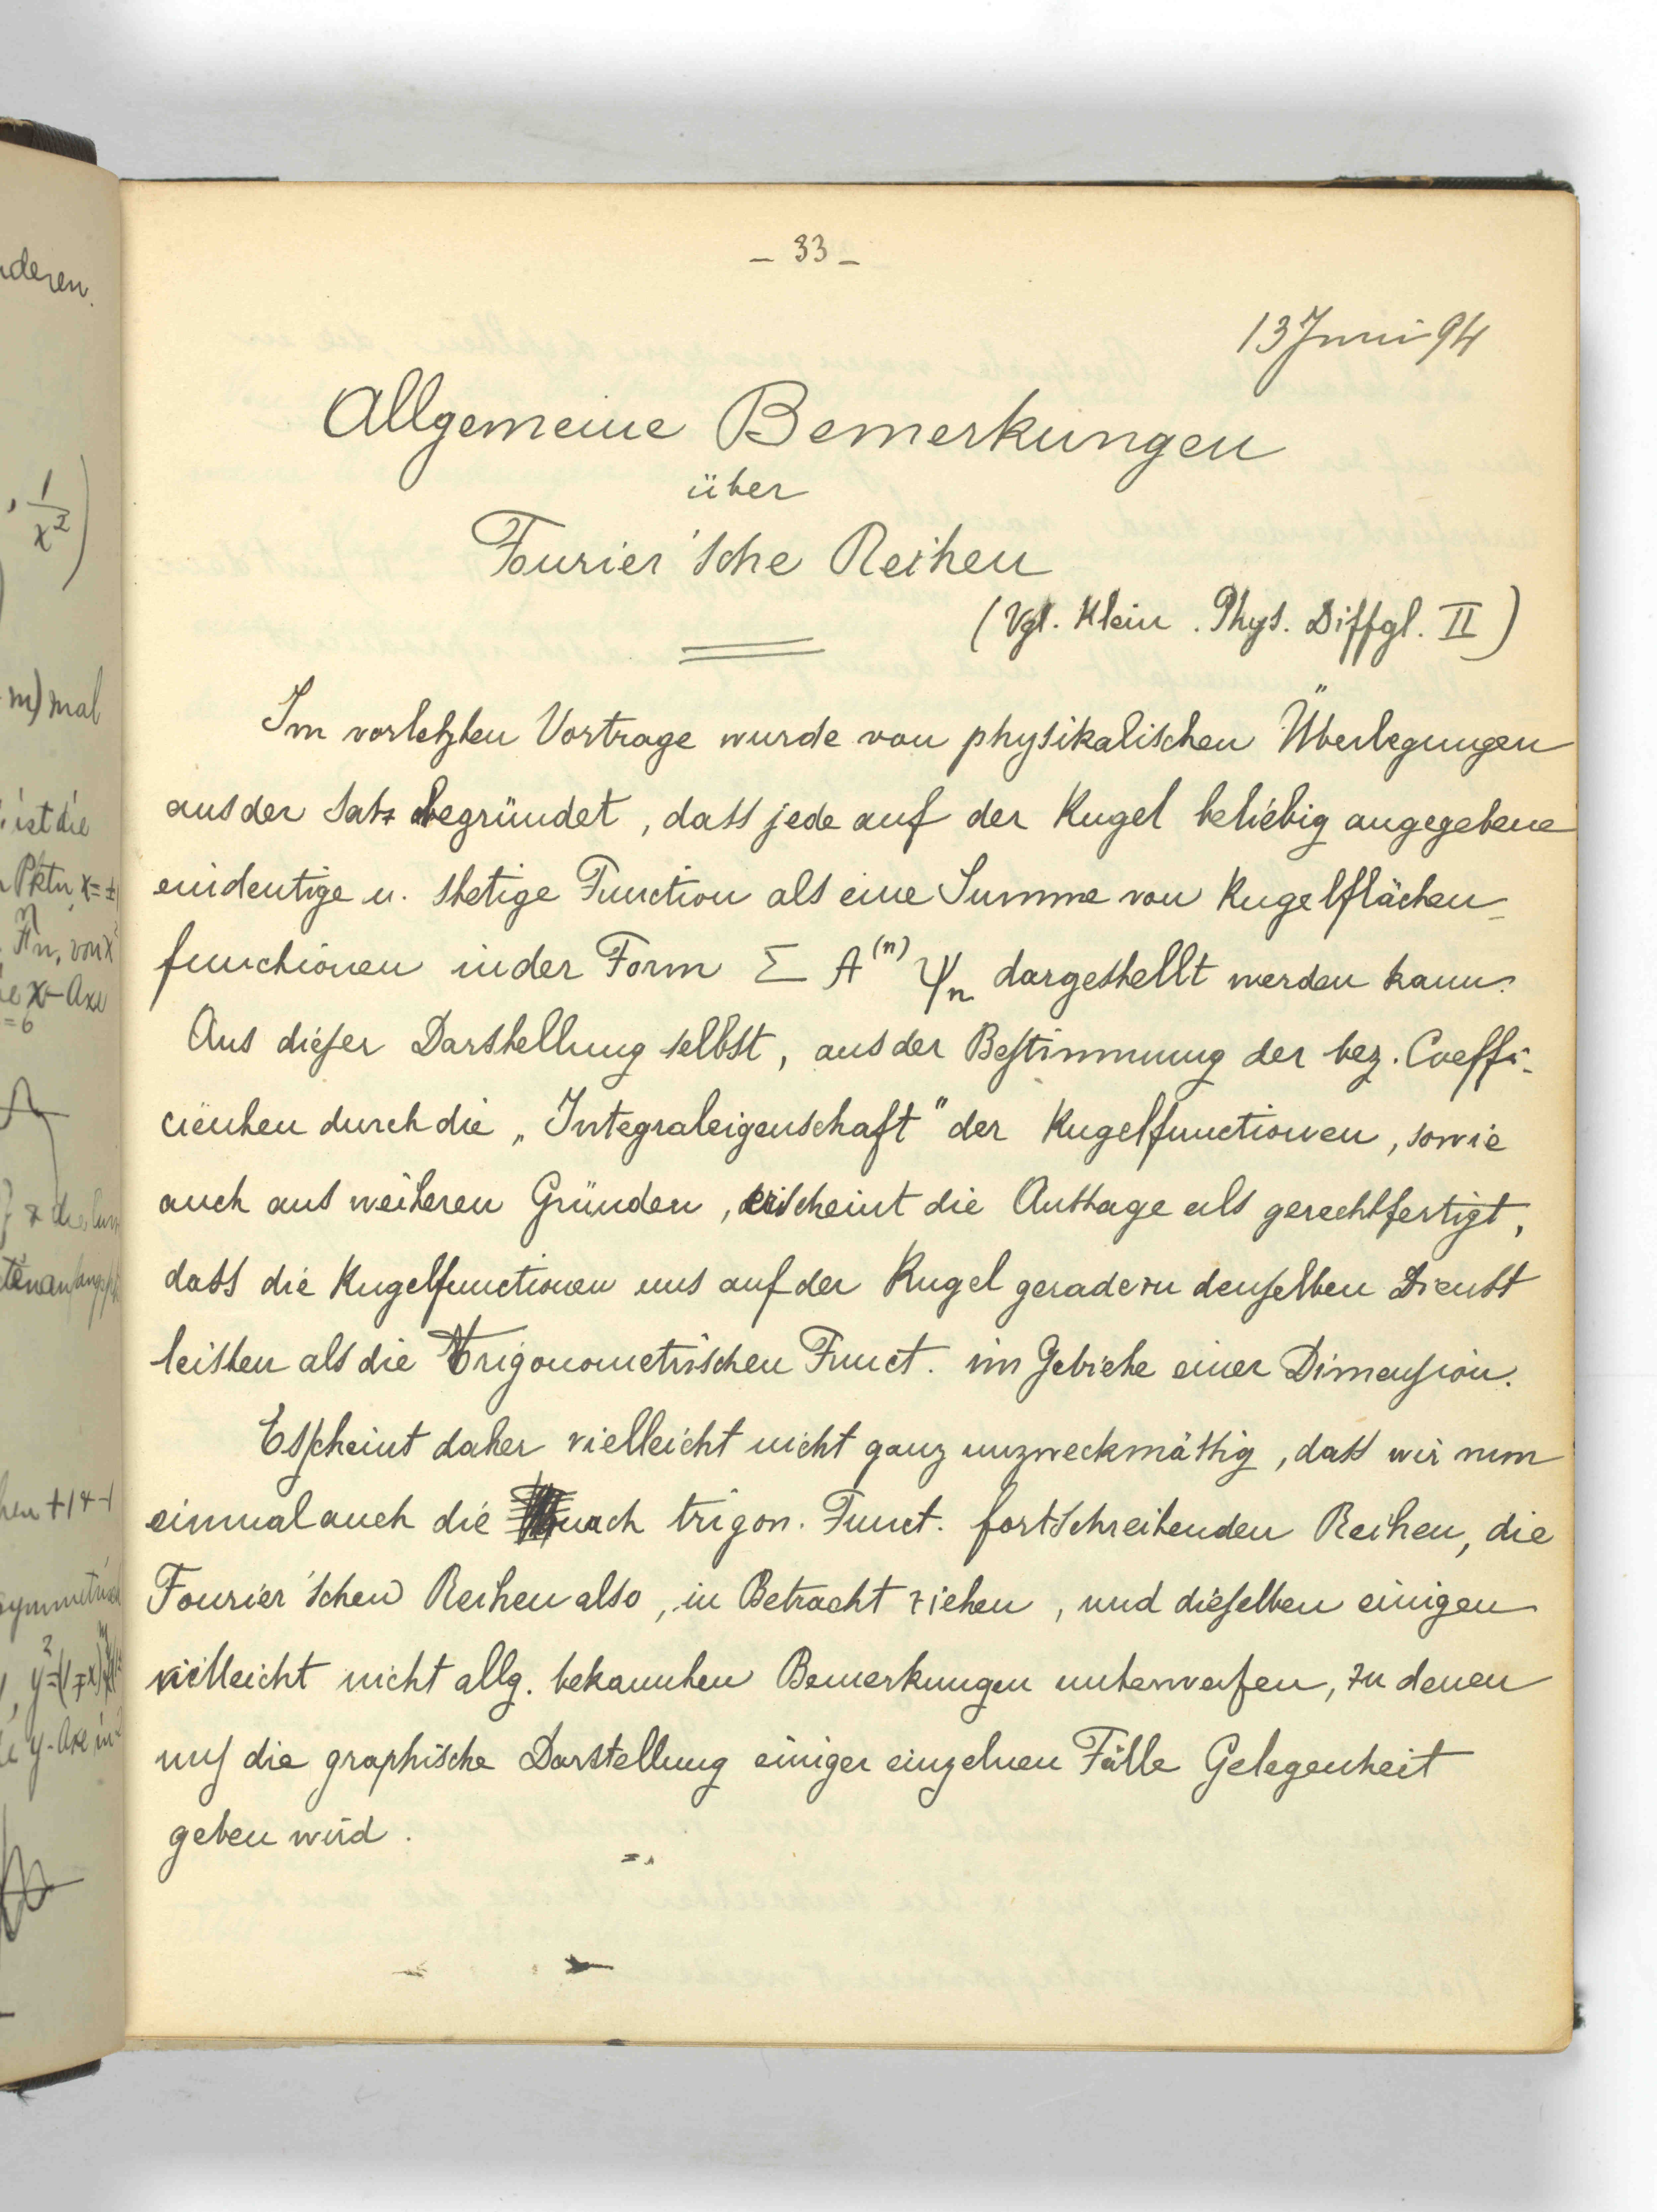 – 33 –
13 Juni 94
Allgemeine Bemerkungen
über
Fourier'sche Reihen
(Vgl. Klein. Phys. Diffgl. II)
Im vorletzten Vortrage wurde von physikalischen Überlegungen
aus der Satz begründet, dass jede auf der Kugel beliebig angegebene
eindeutige u. stetige Function als eine Summe von Kugelflächen-
functionen in der Form Σ A⁽ⁿ⁾ ψₙ dargestellt werden kann.
Aus dieser Darstellung selbst, aus der Bestimmung der bez. Coeffi-
cienten durch die „Integraleigenschaft" der Kugelfunctionen, sowie
auch aus weiteren Gründen, erscheint die Aussage als gerechtfertigt,
dass die Kugelfunctionen uns auf der Kugel geradezu denselben Dienst
leisten als die Trigonometrischen Funct. im Gebiete einer Dimension.
Es scheint daher vielleicht nicht ganz unzweckmässig, dass wir nun
einmal auch die nach trigon. Funct. fortschreitenden Reihen, die
Fourier'schen Reihen also, in Betracht ziehen, und dieselben einigen
vielleicht nicht allg. bekannten Bemerkungen unterwerfen, zu denen
uns die graphische Darstellung einiger einzelnen Fälle Gelegenheit
geben wird.
nderen.
, 1/x²)
m) mal
ist die
Pktn x=±
von x
x-Axe
=6
hen +1 & -1
symmetrisch
y-Axe in